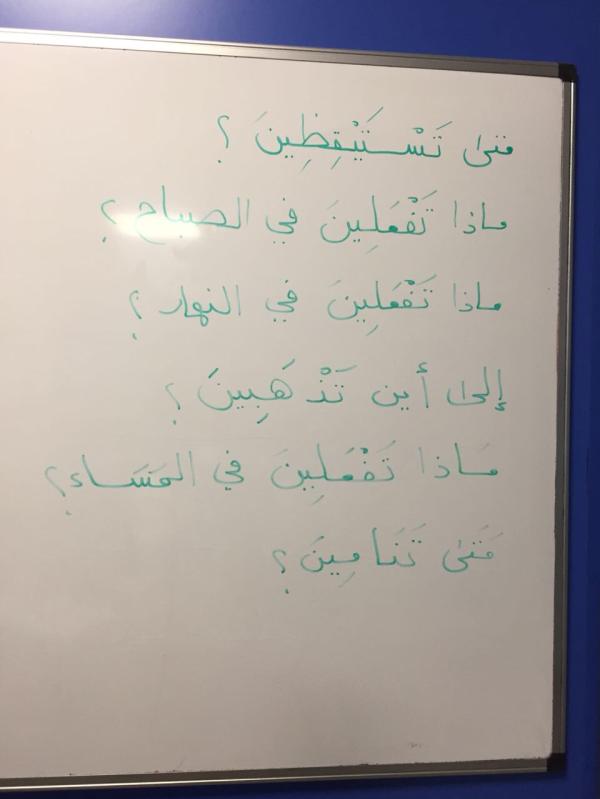 متى تَسْتَيْقِظِينَ ؟
ماذا تَفْعَلِينَ في الصباح ؟
ماذا تَفْعَلِينَ في النهار ؟
إلى أين تَذْهَبِينَ ؟
مَاذا تَفْعَلِينَ في المَسَاء ؟
مَتَى تَنَامِينَ ؟